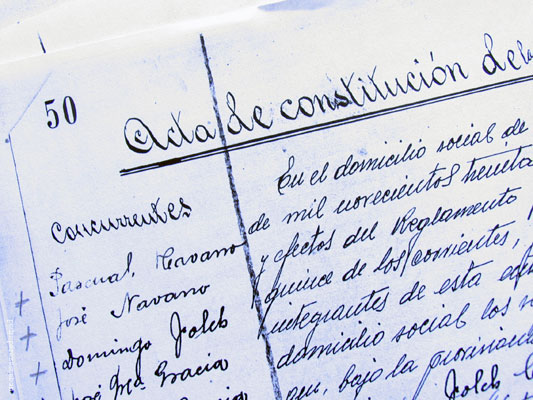 50
Acta de constitución de la
Concurrentes
Pascual Cervano
José Navarro
Domingo Folch
José Mª Gracia
García
En el domicilio social de
de mil novecientos treinta
y efectos del Reglamento
quince de los corrientes,
integrantes de esta
domicilio social los
que, bajo la
Folch